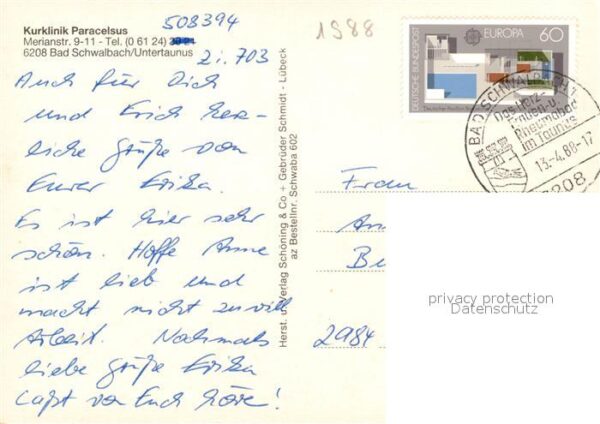 508394
Kurklinik Paracelsus
Merianstr. 9-11 - Tel. (0 61 24)
6208 Bad Schwalbach/Untertaunus
Zi. 703
Auch für Dich
und Erich herz-
liche Grüße von
Eurer Erika.
Es ist hier sehr
schön. Hoffe Anne
ist lieb und
macht nicht zu viel
Arbeit. Nochmals
liebe Grüße Erika
Laßt von Euch hören!
Herst. u. Verlag Schöning & Co + Gebrüder Schmidt - Lübeck
az Bestellnr. Schwaba 602
1988
DEUTSCHE BUNDESPOST
EUROPA 60
BAD SCHWALBACH 1
Das Herz-
Frauen-u.
Rheumabad
im Taunus
13.-4.88-17
6208
Frau
An
Be
2984
privacy protection
Datenschutz